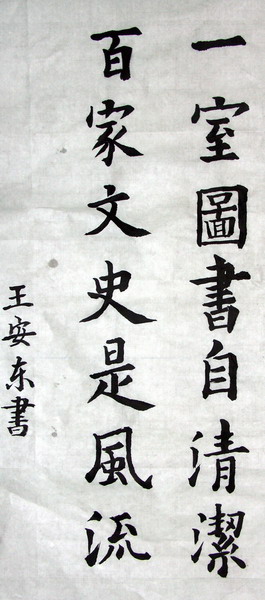 一室圖書自清潔
百家文史是風流
王安东書